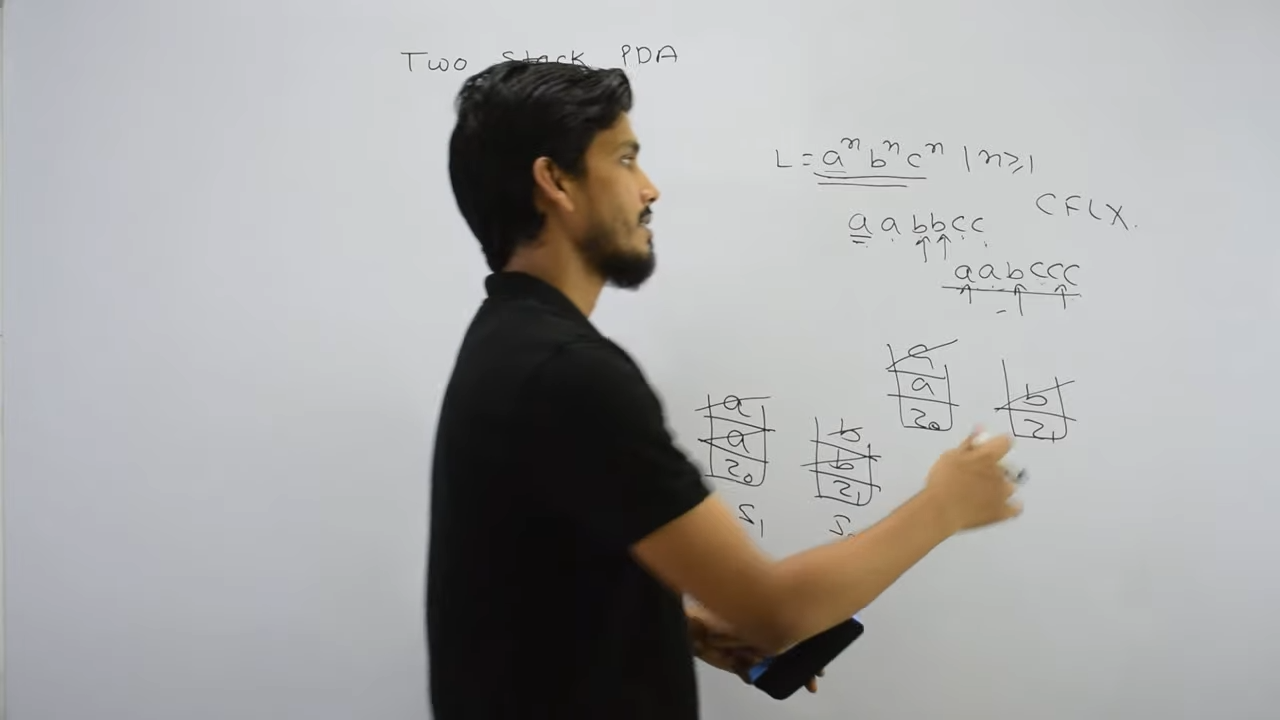 Two Stack PDA
L = aⁿ bⁿ cⁿ | n ≥ 1
CFL X.
a a b b c c
a a b c c c
a
a
z₀
b
z₁
a
a
z₀
b
b
z₁
S₁